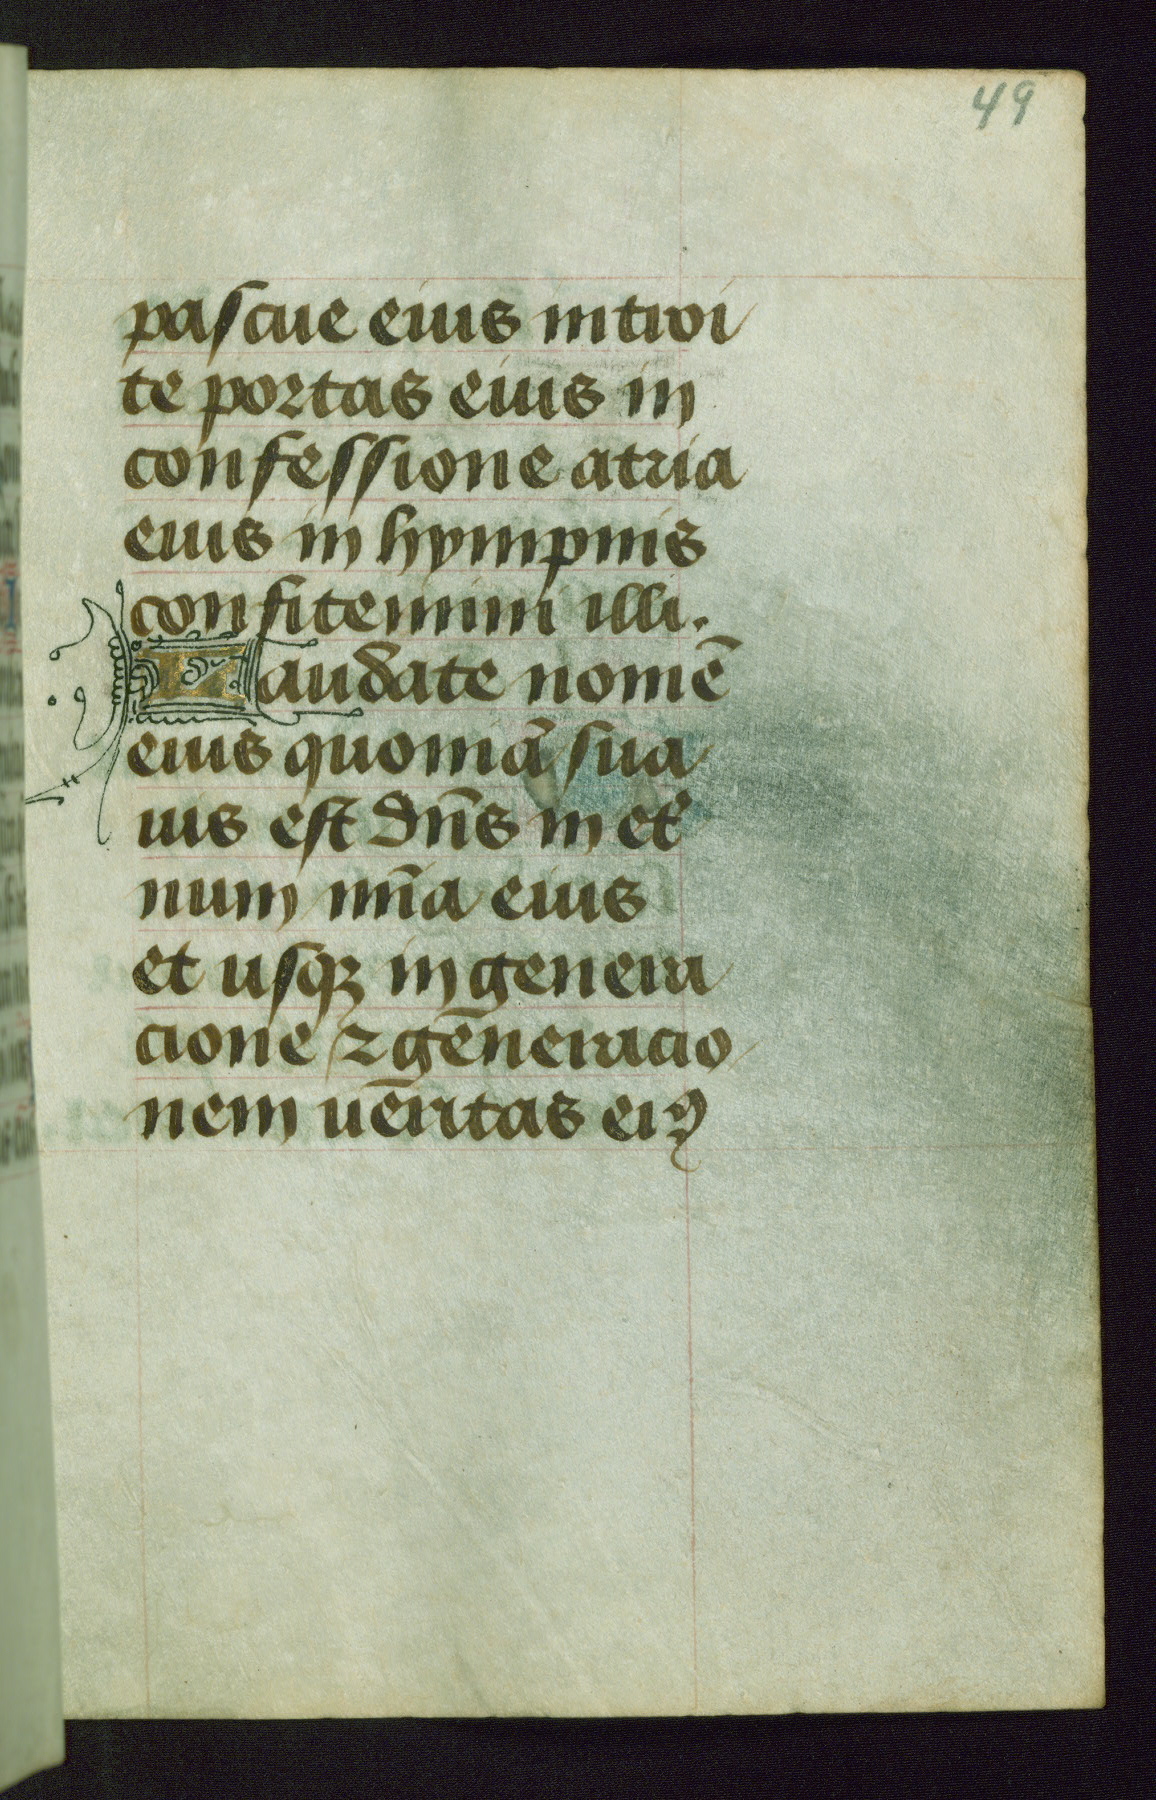 49
pascue eius introi
te portas eius in
confessione atria
eius in hympnis
confitemini illi.
Laudate nomē
eius quoniā sua
uis est dn̄s in et̾
num mīa eius
et usqꝫ in genera
cione ⁊ gēneracio
nem uēritas eiꝰ